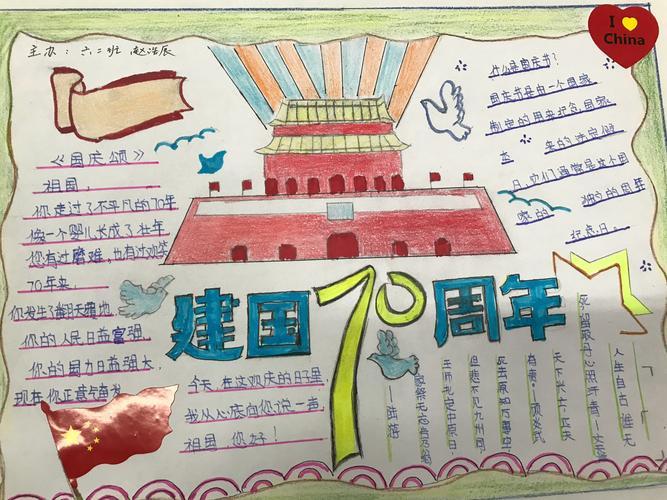 主办：六二班 赵浩辰
I
China
什么是国庆节？
国庆节是由一个国家
制定的用来纪念国家
本 来的法定假
日，它们通常是这个国
家的 独立的周年
纪念日。
《国庆颂》
祖国，
你走过了不平凡的70年
像一个婴儿长成了壮年
您有过磨难，也有过欢笑
70年来，
你发生了翻天覆地
你的人民日益富强
你的国力日益强大，
现在你正意气奋发
建国70周年
今天，在这欢庆的日子里，
我从心底向您说一声，
祖国 您好！
人生自古谁无
死，留取丹心照汗青。—文天
天下兴亡，匹夫
有责。—顾炎武
死去原知万事空
但悲不见九州同，
王师北定中原日，
家祭无忘告乃翁
——陆游